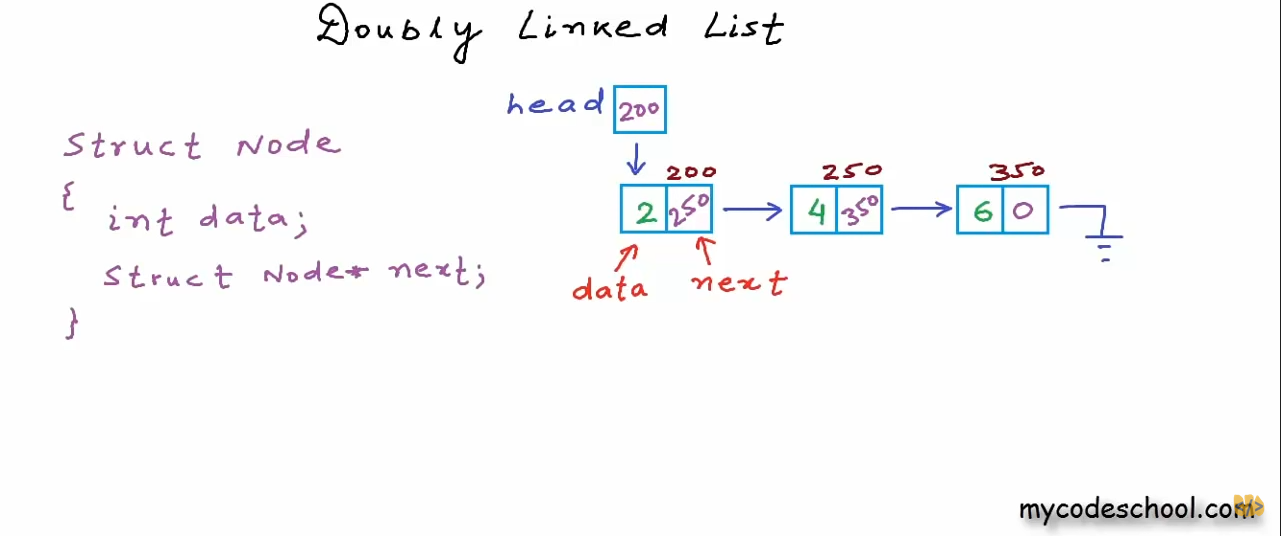 Doubly Linked List
head 200
Struct Node
{
int data;
Struct Node* next;
}
200 250 350
2 250 4 350 6 0
data next
mycodeschool.com